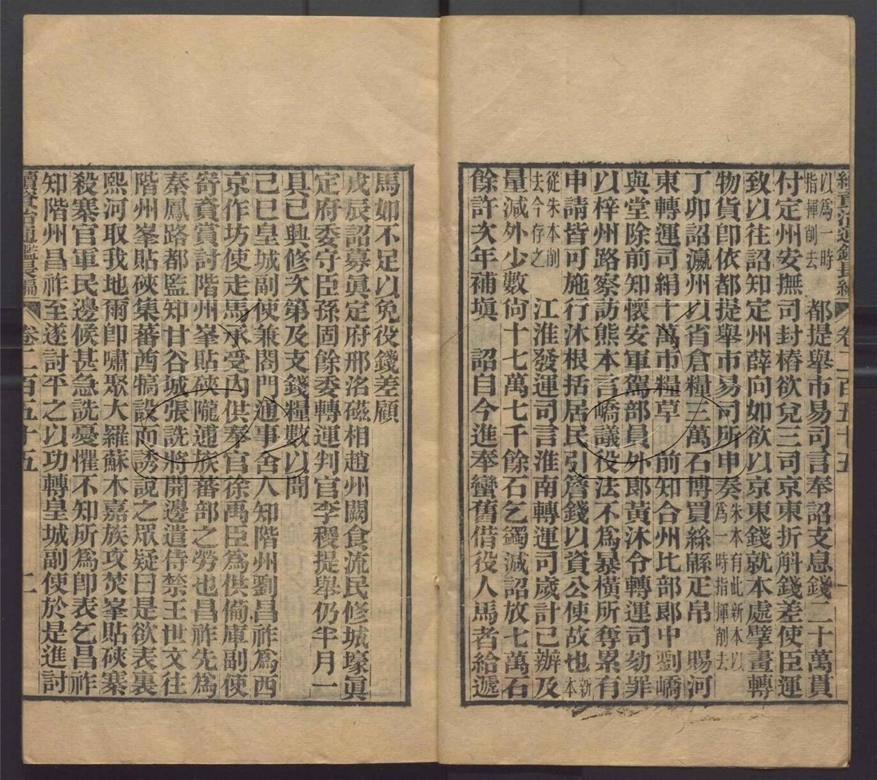 續資治通鑑長編 卷二百五十五 一
以爲一時指揮削去 都提舉市易司言奉詔支息錢二十萬貫
付定州安撫司封樁欲兌三司京東折斛錢差使臣運
致以往詔知定州薛向如欲以京東錢就本處擘畫轉
物貨卽依都提舉市易司所申奏朱本有此新本以爲一時指揮削去
丁卯詔瀛州以省倉糧三萬石博買絲緜疋帛 賜河
東轉運司絹十萬市糧草 前知合州比部郎中劉嶠
與堂除前知懷安軍駕部員外郎黃沐令轉運司劾罪
以梓州路察訪熊本言嶠議役法不爲暴橫所奪累有
申請皆可施行沐根括居民引簷錢以資公使故也新本
從朱本削去今存之 江淮發運司言淮南轉運司歲計已辦及
量減外少數尙十七萬七千餘石乞蠲減詔放七萬石
餘許次年補塡 詔自今進奉蠻舊借役人馬者給遞
馬如不足以免役錢差顧
戊辰詔募眞定府邢洺磁相趙州闕食流民修城壕眞
定府委守臣孫固餘委轉運判官李稷提舉仍半月一
具已興修次第及支錢糧數以聞
己巳皇城副使兼閤門通事舍人知階州劉昌祚爲西
京作坊使走馬承受內供奉官徐禹臣爲供備庫副使
寄資賞討階州峯貼硤隴逋族蕃部之勞也昌祚先爲
秦鳳路都監知甘谷城張詵將開邊遣侍禁王世文往
階州峯貼硤集蕃酋犒設而誘說之眾疑曰是欲表裏
熙河取我地爾卽嘯聚大羅蘇木嘉族攻焚峯貼硤寨
殺寨官軍民邊候甚急詵憂懼不知所爲卽表乞昌祚
知階州昌祚至遂討平之以功轉皇城副使於是進討
續資治通鑑長編 卷二百五十五 二